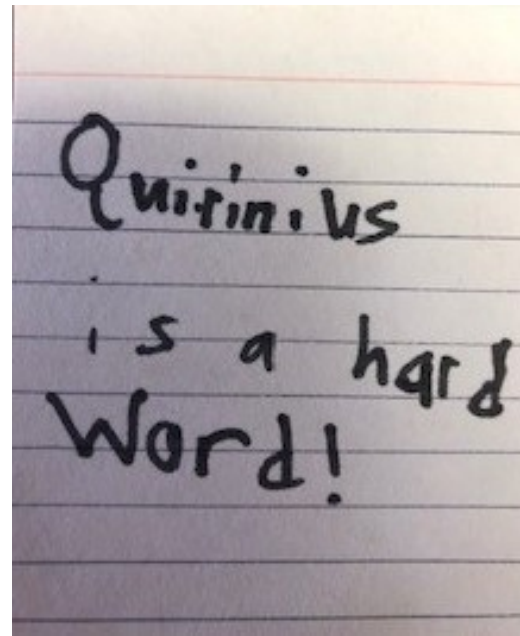 Quirinius
is a hard
Word!